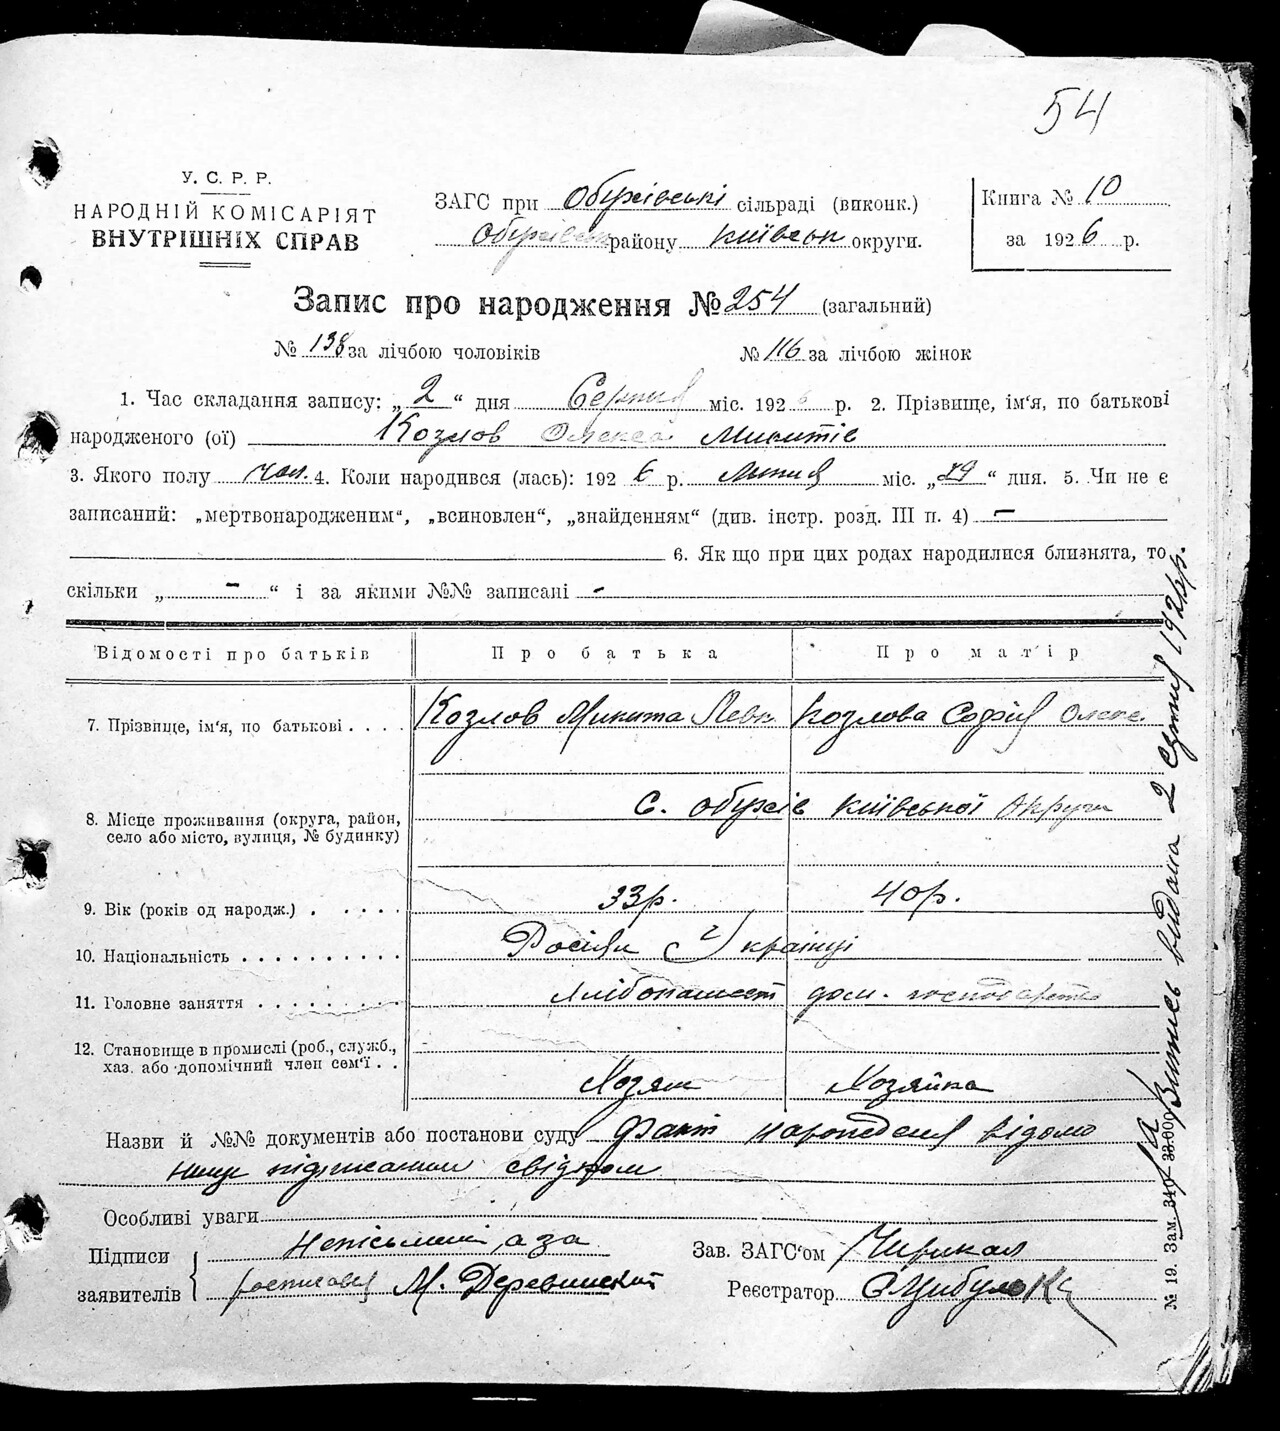 54
У. С. Р. Р.
НАРОДНІЙ КОМІСАРІЯТ
ВНУТРІШНІХ СПРАВ
ЗАГС при Обухівські сільраді (виконк.)
Обухівськ району Київськ округи.
Книга № 10
за 1926 р.
Запис про народження № 254 (загальний)
№ 138 за лічбою чоловіків № 116 за лічбою жінок
1. Час складання запису: „2“ дня Серпня міс. 1926 р. 2. Прізвище, ім'я, по батькові
народженого (ої) Козлов Олексій Микитів
3. Якого полу чол. 4. Коли народився (лась): 1926 р. Липня міс. „29“ дня. 5. Чи не є
записаний: „мертвонародженим“, „всиновлен“, „знайденням“ (див. інстр. розд. III п. 4) —
6. Як що при цих родах народилися близнята, то
скільки „ - “ і за якими №№ записані -
Відомості про батьків Про батька Про матір
7. Прізвище, ім'я, по батькові . . . . Козлов Микита Левк. Козлова Софія Олекс.
8. Місце проживання (округа, район,
село або місто, вулиця, № будинку)
с. Обухів Київської Округи
9. Вік (років од народж.) . . . . . 33р. 40р.
10. Національність . . . . . . . . . . Росіян Українці
11. Головне заняття . . . . . . . . Хлібопашест дом. господарство
12. Становище в промислі (роб., служб.,
хаз. або допомічний член сем'ї . .
Хозяин Хозяйка
Назви й №№ документів або постанови суду Факт народження відомо
нище підписаним свідком
Особливі уваги
Підписи
заявителів
Неписьмений, а за
росписався М. Деревинский
Зав. ЗАГС'ом
Реєстратор С Цибулько
Випись видана 2 серпня 1926р.
№ 19. Зам.